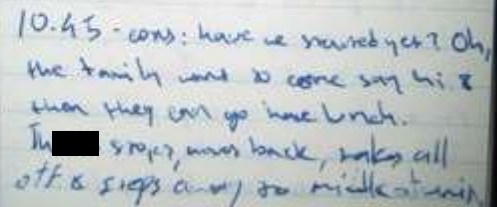 10.45 - cons: have we scrubbed yet? Oh,
the family want to come say hi &
then they can go have lunch.
stops, moves back, takes all
off & steps away to